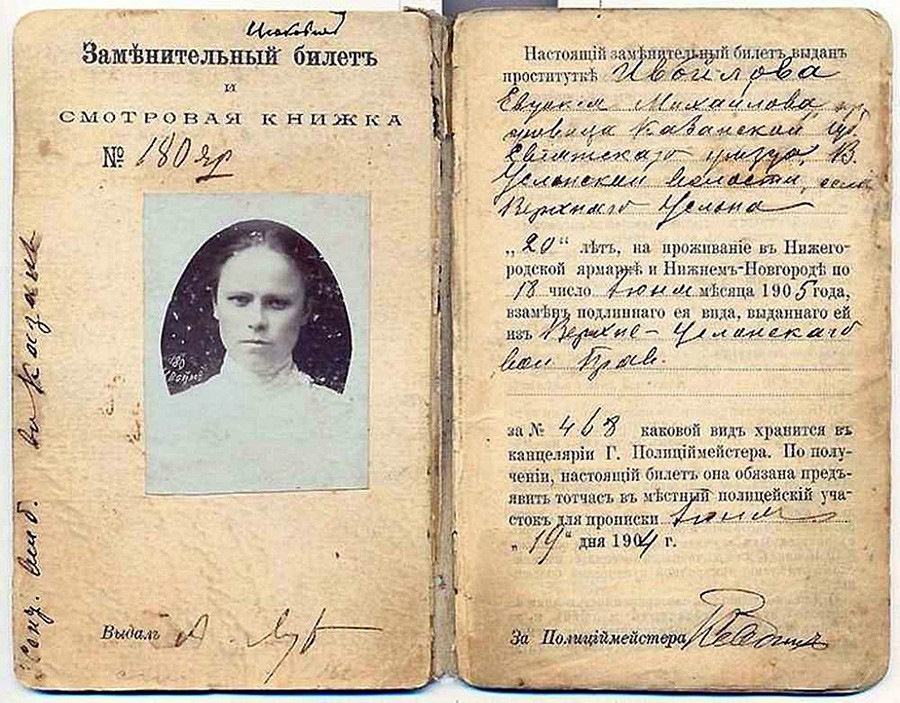 Замѣнительный билетъ
и
СМОТРОВАЯ КНИЖКА
№ 180 яр
180
Выдалъ А.
Настоящій замѣнительный билетъ выданъ
проституткѣ
Михайлова
Казанской губ
уѣзда, В.
Услонской волости, села
Верхняго Услона
„20“ лѣтъ, на проживаніе въ Нижего-
родской ярмаркѣ и Нижнемъ-Новгородѣ по
18 число Іюня мѣсяца 1905 года,
взамѣнъ подлиннаго ея вида, выданнаго ей
изъ Верхне-Услонскаго
вол Прав.
за № 468 каковой видъ хранится въ
канцеляріи Г. Полиціймейстера. По полу-
ченіи, настоящій билетъ она обязана предъ-
явить тотчасъ въ мѣстный полицейскій уча-
стокъ для прописки Іюня
„19“ дня 1904 г.
За Полиціймейстера
въ Казани